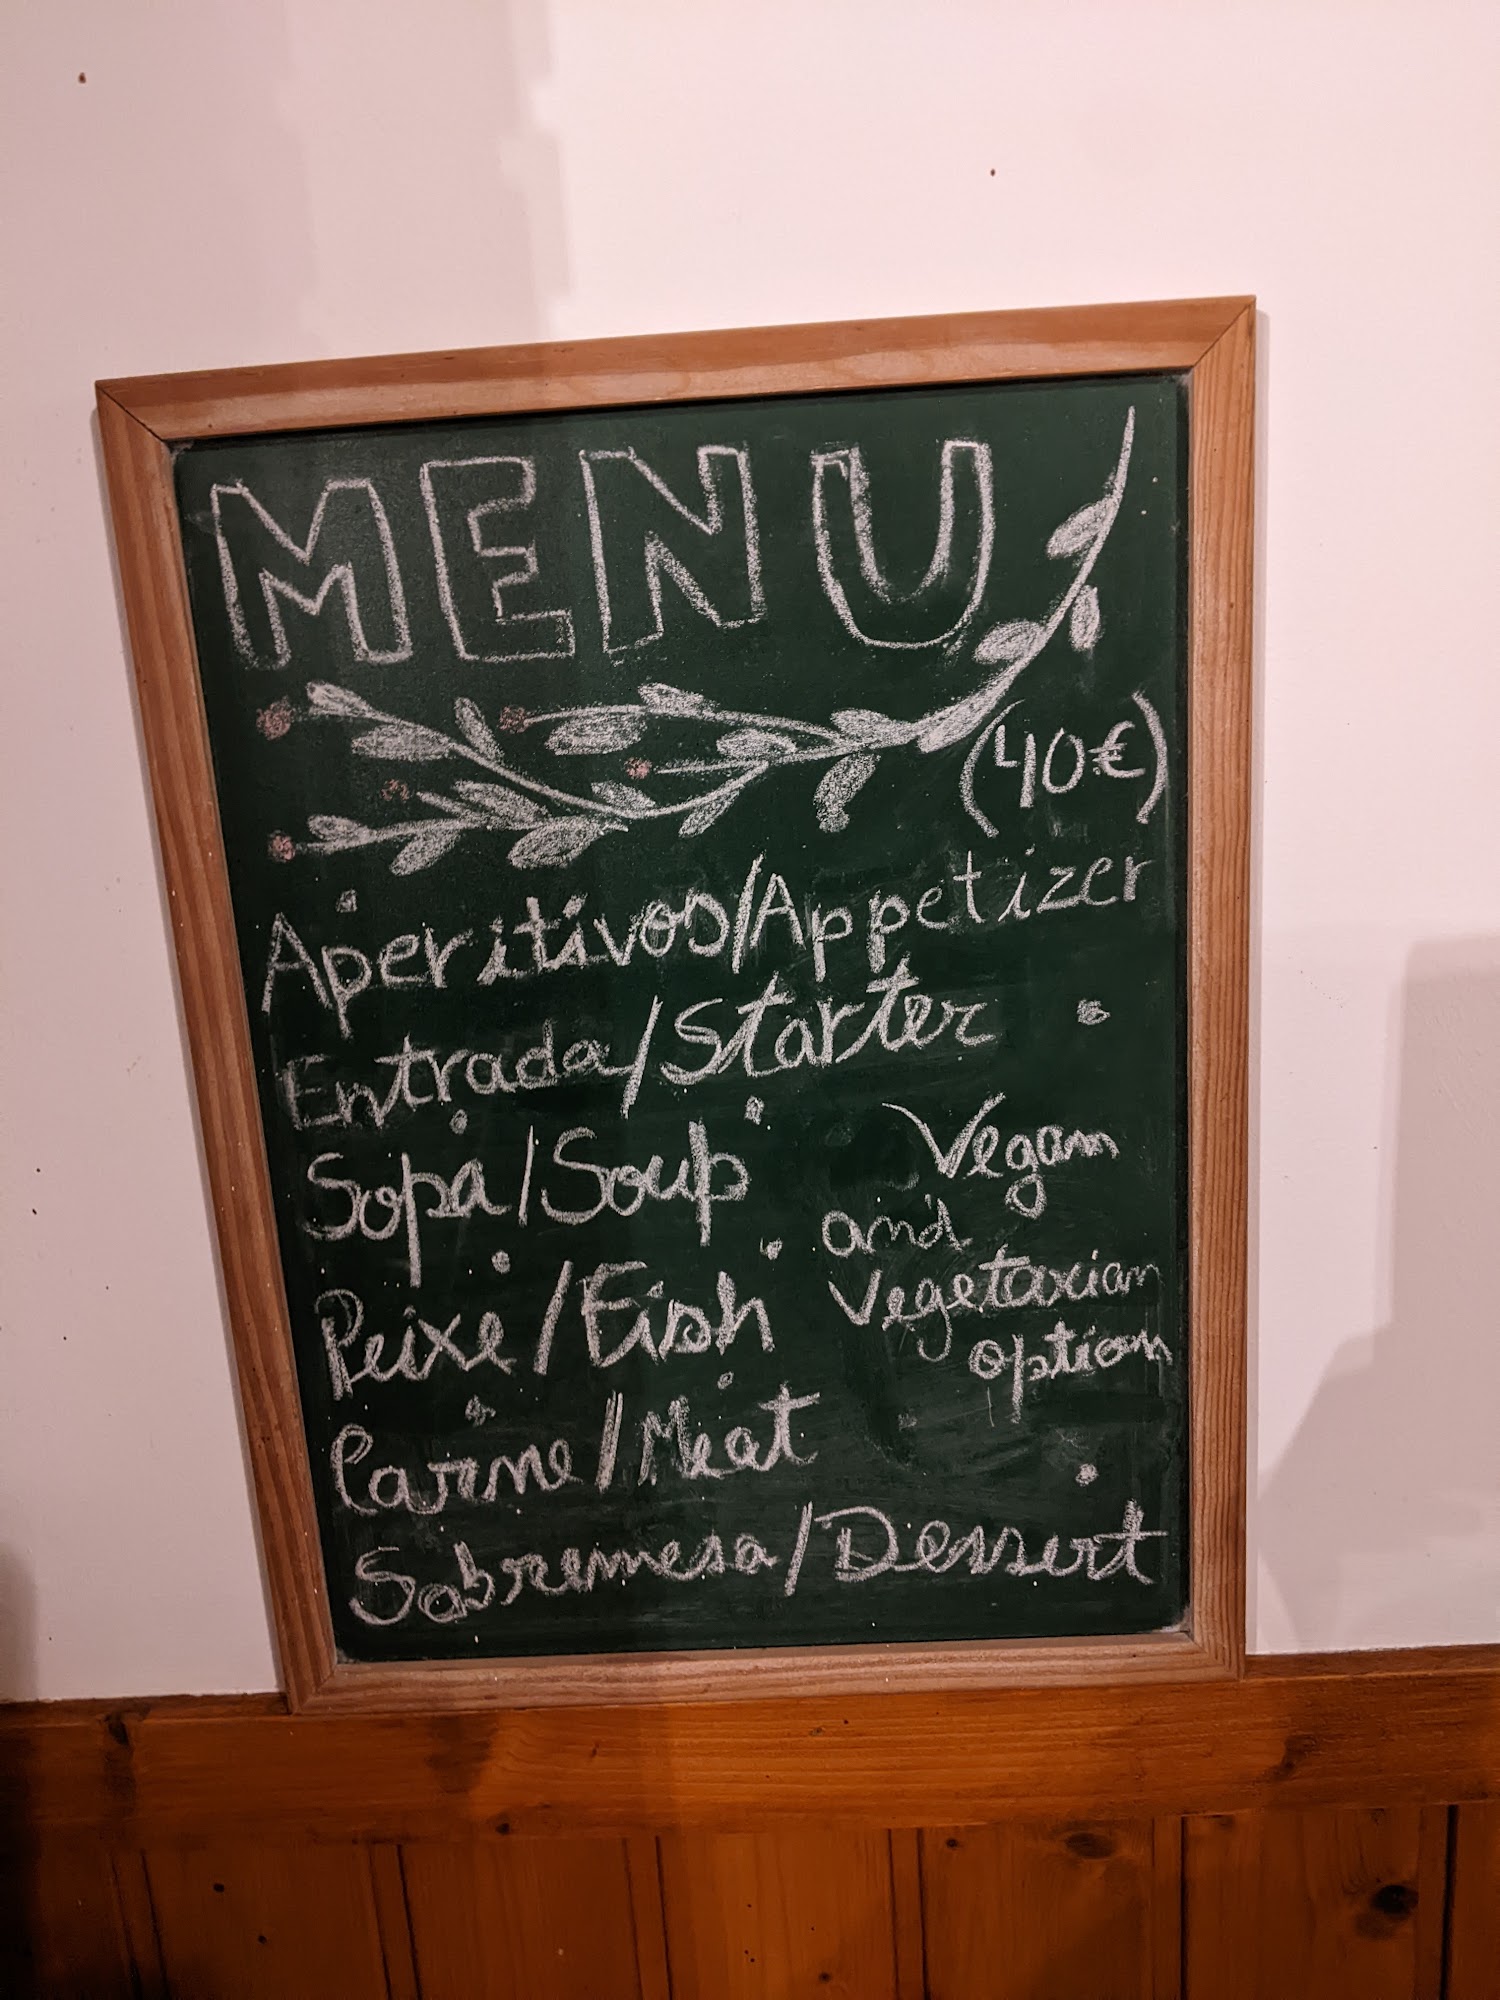 MENU
(40€)
Aperitivos/Appetizer
Entrada/Starter
Sopa/Soup
Peixe/Fish
Carne/Meat
Sobremesa/Dessert
Vegan
and
Vegetarian
option